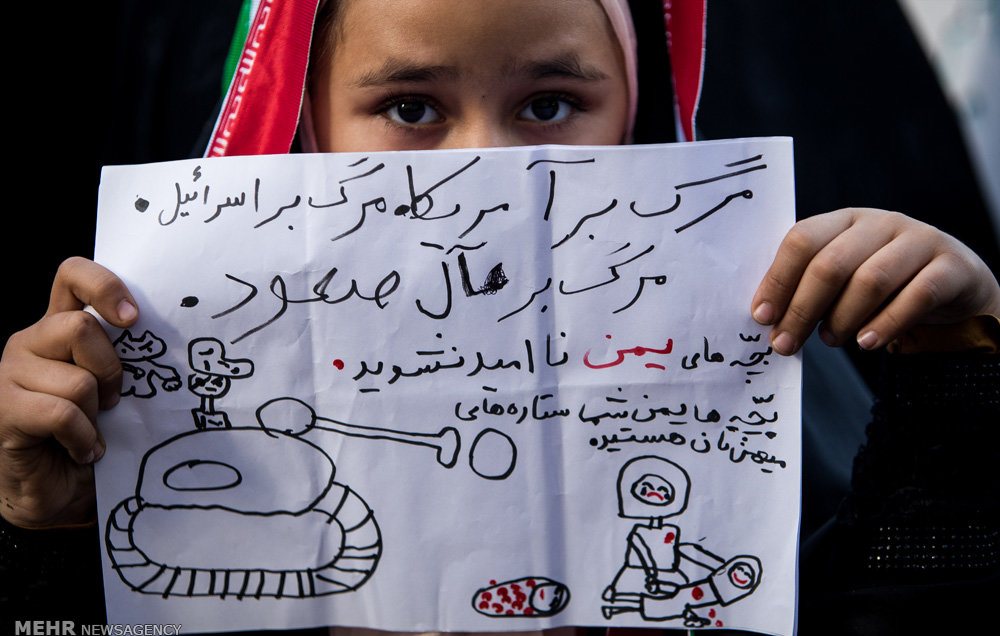 مرگ بر آمریکا. مرگ بر اسرائیل.
مرگ بر آل صعود.
بچّه های یمن نا امید نشوید.
بچّه ها یمن شما ستاره های
میهن تان هستید.
MEHR NEWSAGENCY